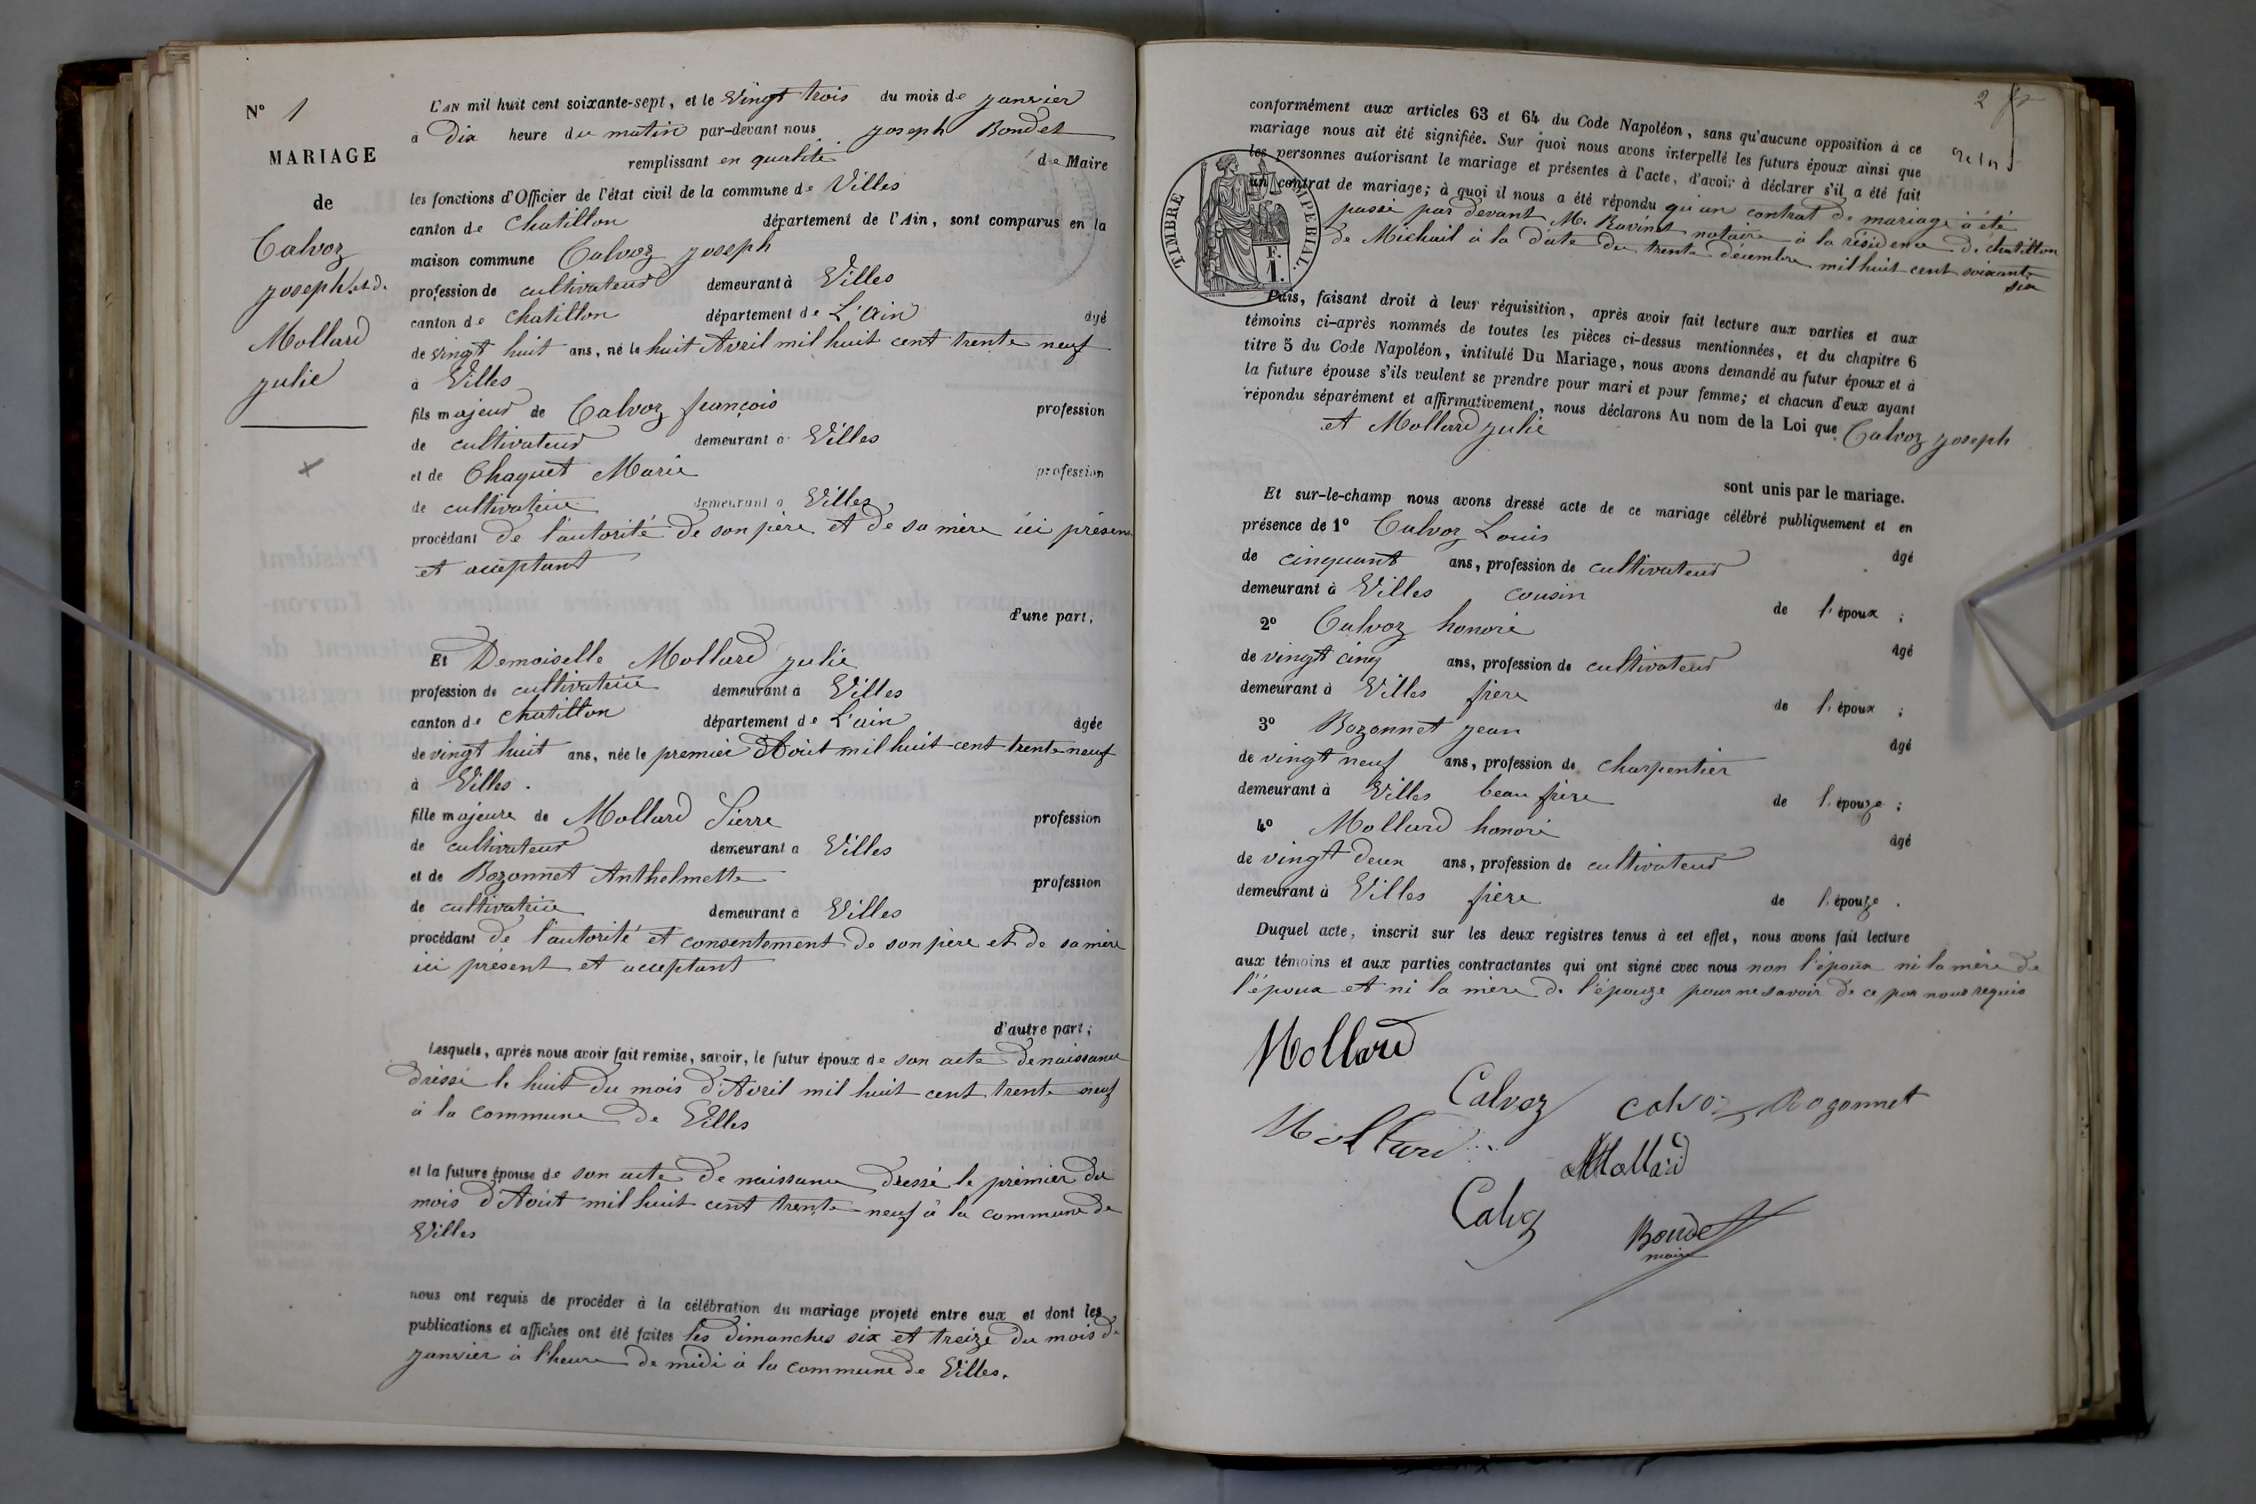 N° 1
MARIAGE
de
Calvoz
joseph et de
Mollard
julie
L'AN mil huit cent soixante-sept, et le vingt trois du mois de janvier
à dix heure du matin par-devant nous joseph Bondet
remplissant en qualité de Maire
les fonctions d'Officier de l'état civil de la commune de Villes
canton de chatillon département de l'Ain, sont comparus en la
maison commune Calvoz joseph
profession de cultivateur demeurant à Villes
canton de chatillon département de L'ain âgé
de vingt huit ans, né le huit Avril mil huit cent trente neuf
à Villes
fils majeur de Calvoz françois profession
de cultivateur demeurant à Villes
et de Chaquet Marie profession
de cultivatrice demeurant à Villes
procédant de l'autorité de son père et de sa mère ici présent
et acceptant
d'une part;
Et Demoiselle Mollard julie
profession de cultivatrice demeurant à Villes
canton de chatillon département de L'ain âgée
de vingt huit ans, née le premier Aout mil huit cent trente neuf
à Villes.
fille majeure de Mollard Pierre profession
de cultivateur demeurant à Villes
et de Bozonnet Anthelmette profession
de cultivatrice demeurant à Villes
procédant de l'autorité et consentement de son père et de sa mère
ici présent et acceptant
d'autre part;
Lesquels, après nous avoir fait remise, savoir, le futur époux de son acte de naissance
dressé le huit du mois d'Avril mil huit cent trente neuf
à la commune de Villes
et la future épouse de son acte de naissance dressé le prémier du
mois d'Aout mil huit cent trente neuf à la commune de
Villes
nous ont requis de procéder à la célébration du mariage projeté entre eux et dont les
publications et affiches ont été faites les dimanches six et treize du mois de
janvier à l'heure de midi à la commune de Villes.
2
conformément aux articles 63 et 64 du Code Napoléon, sans qu'aucune opposition à ce
mariage nous ait été signifiée. Sur quoi nous avons interpellé les futurs époux ainsi que
les personnes autorisant le mariage et présentes à l'acte, d'avoir à déclarer s'il a été fait
un contrat de mariage; à quoi il nous a été répondu qu'un contrat de mariage à été
passé par devant Me Ravinet notaire à la résidence de chatillon
de Michail à la date du trente décembre mil huit cent soixante
six
TIMBRE IMPERIAL.
F.
1.
Puis, faisant droit à leur réquisition, après avoir fait lecture aux parties et aux
témoins ci-après nommés de toutes les pièces ci-dessus mentionnées, et du chapitre 6
titre 5 du Code Napoléon, intitulé Du Mariage, nous avons demandé au futur époux et à
la future épouse s'ils veulent se prendre pour mari et pour femme; et chacun d'eux ayant
répondu séparément et affirmativement, nous déclarons Au nom de la Loi que Calvoz joseph
et Mollard julie
sont unis par le mariage.
Et sur-le-champ nous avons dressé acte de ce mariage célébré publiquement et en
présence de 1° Calvoz Louis âgé
de cinquant ans, profession de cultivateur
demeurant à Villes cousin de l'époux;
2° Calvoz honoré âgé
de vingt cinq ans, profession de cultivateur
demeurant à Villes frère de l'époux;
3° Bozonnet jean âgé
de vingt neuf ans, profession de charpentier
demeurant à Villes beau frère de l'épouze;
4° Mollard honoré âgé
de vingt deux ans, profession de cultivateur
demeurant à Villes frère de l'épouze.
Duquel acte, inscrit sur les deux registres tenus à cet effet, nous avons fait lecture
aux témoins et aux parties contractantes qui ont signé avec nous non l'époux ni la mère de
l'époux et ni la mère de l'épouze pour ne savoir de ce par nous requis
Mollard
Calvoz Calvoz Bozonnet
Mollard
Mollard
Calvoz
Bondet
maire